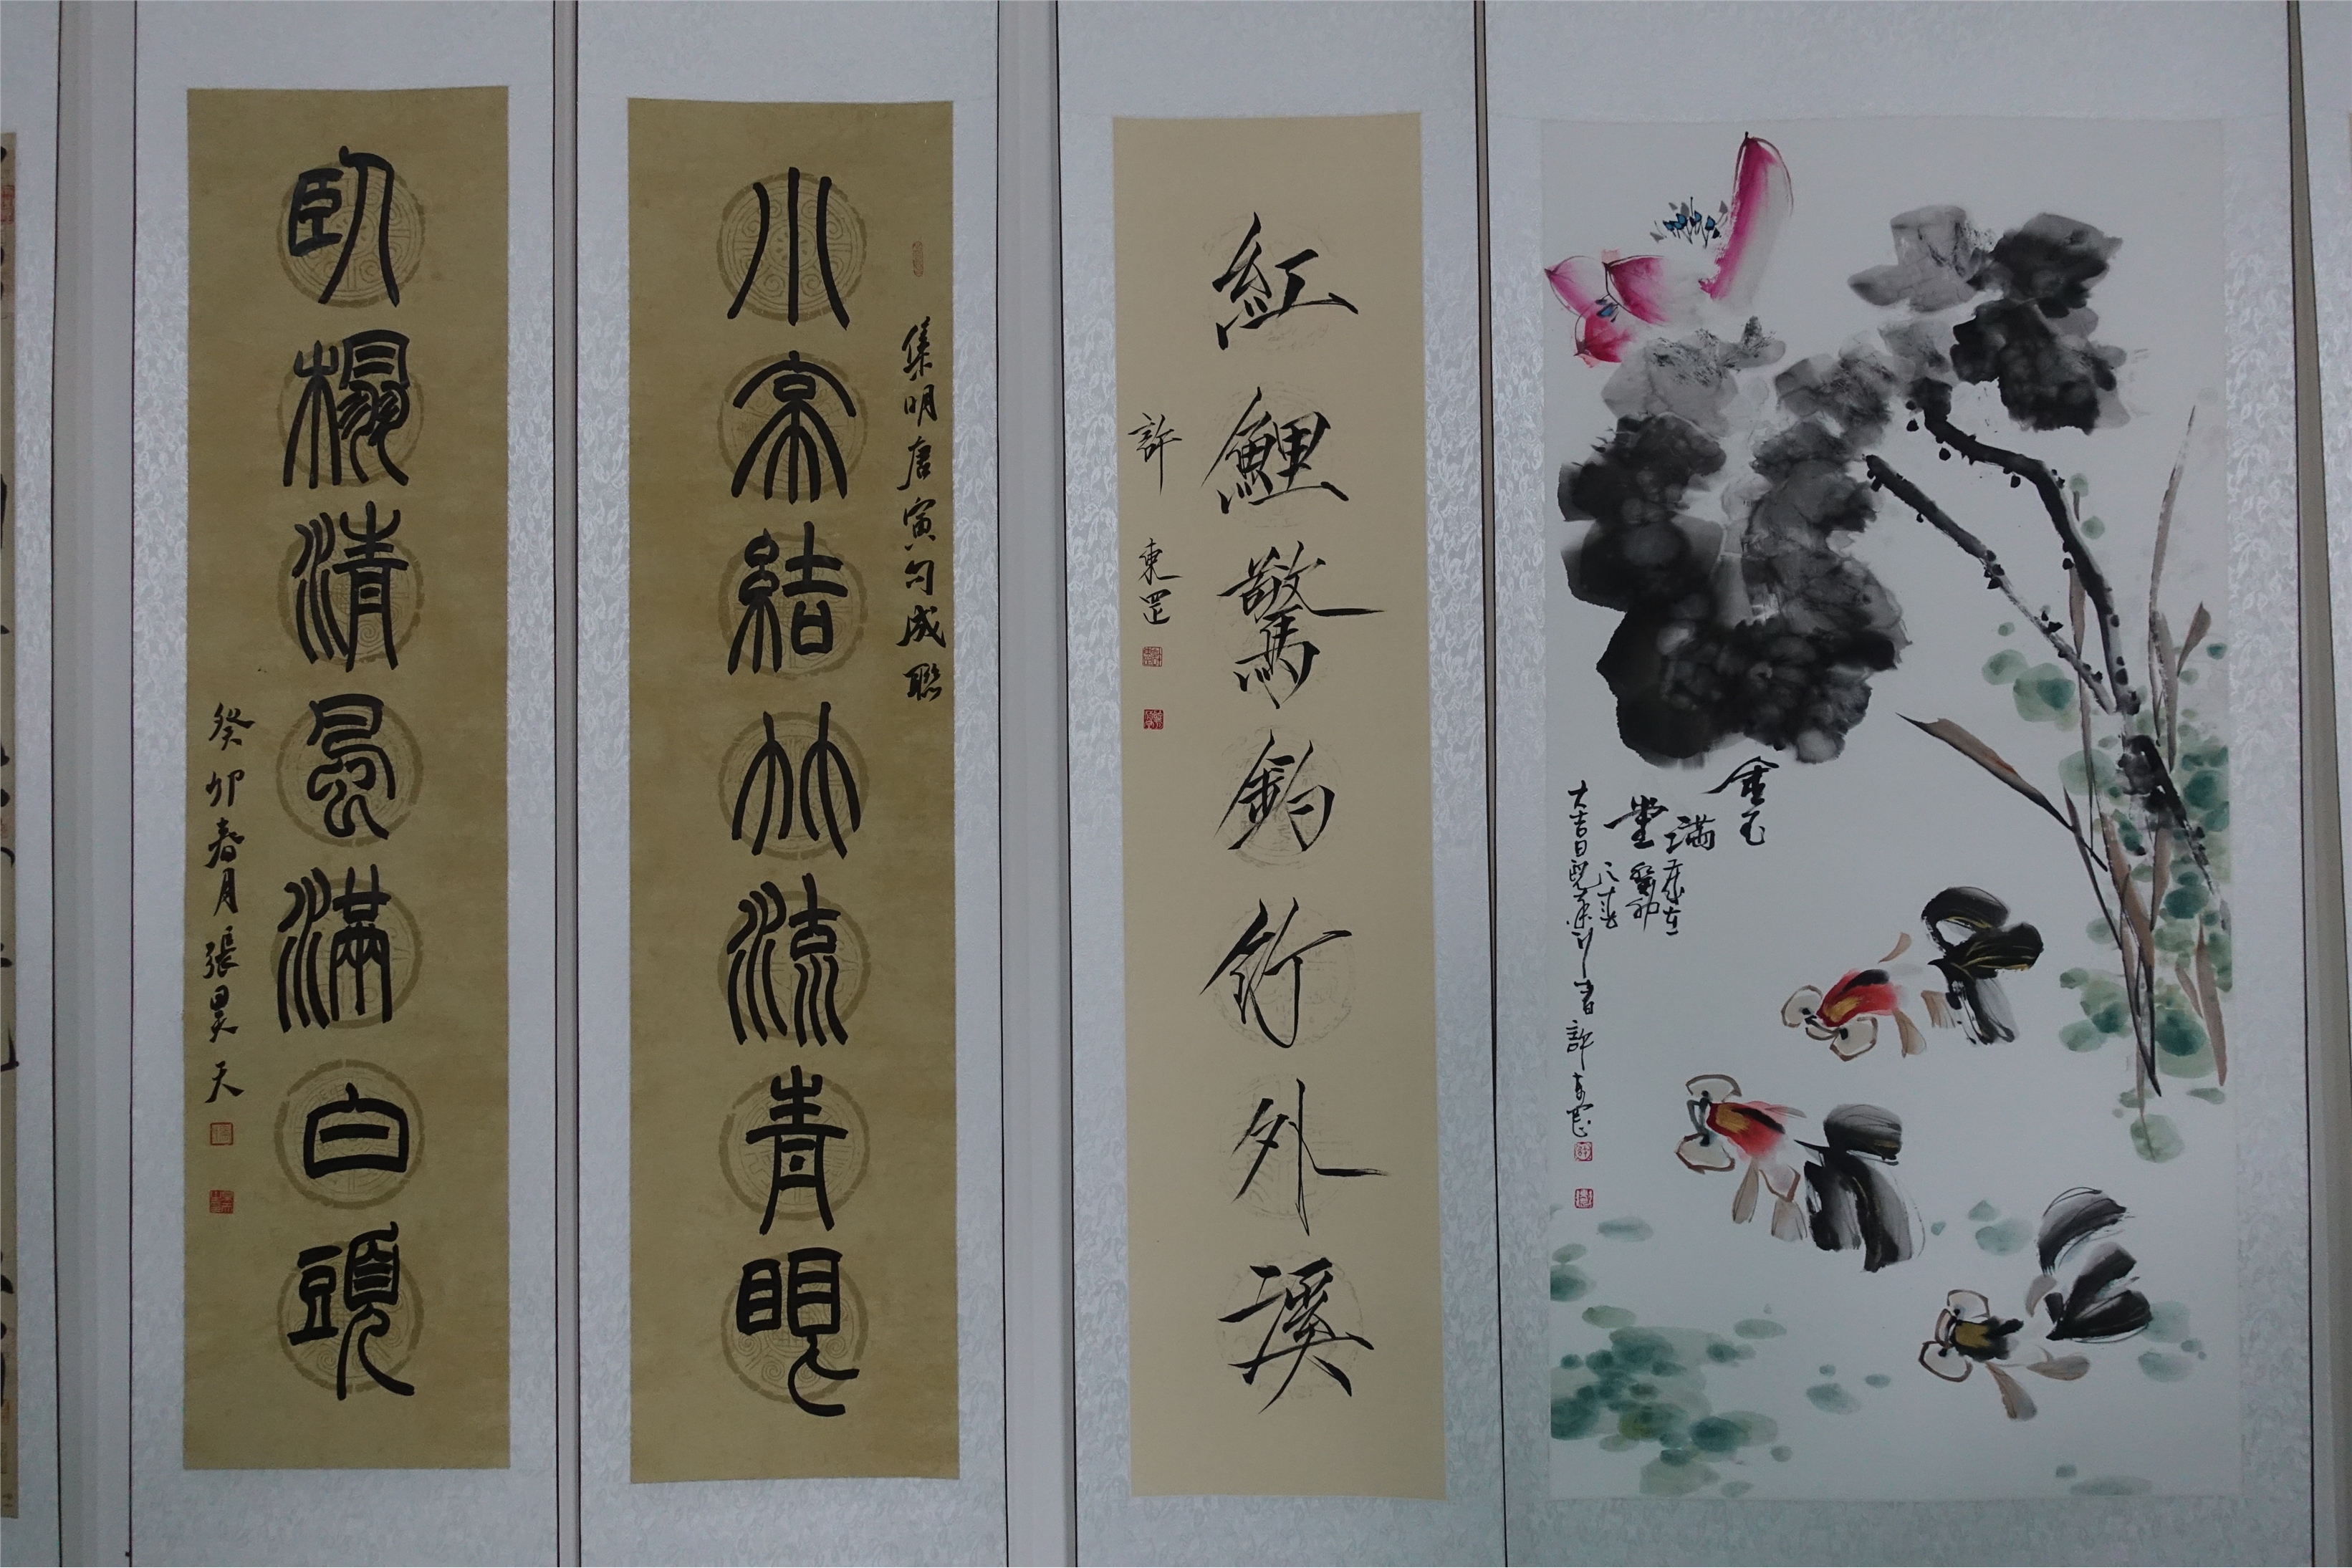 金玉
滿
堂
大吉日
許東罡
紅鯉驚鈎竹外溪
許東罡
集明唐寅句成聯
小亭結竹流青眼
臥榻清風滿白頭
癸卯春月張昊天